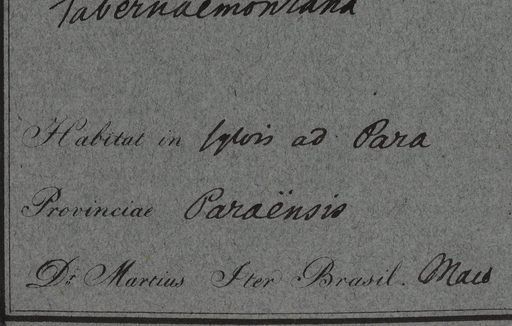 Tabernaemontana
Habitat in sylvis ad Para
Provinciae Paraënsis
Dr. Martius Iter Brasil.